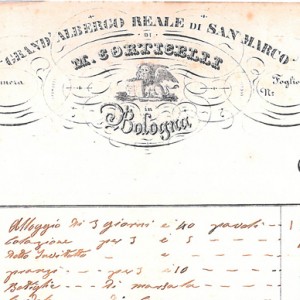 GRAND' ALBERGO REALE DI SAN MARCO
DI
M. CORTICELLI
mera
Foglio
Nr
in
Bologna
Alloggio di 3 giorni a 40 pavoli
Colazione per 3 a 5
detto
pranzi per 3 a 10
Bottiglie di marsala